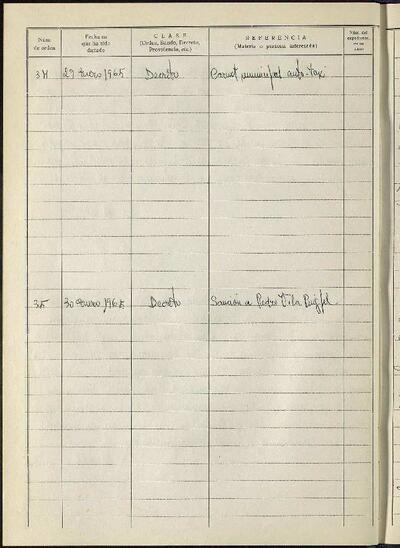 Núm. de orden
Fecha en que ha sido dictado
CLASE
(Orden, Bando, Decreto, Providencia, etc.)
REFERENCIA
(Materia o persona interesada)
Núm. del expediente
34 29 Enero 1965 Decreto Carnet municipal auto-taxi
35 30 Enero 1965 Decreto Sanción a Pedro Vila